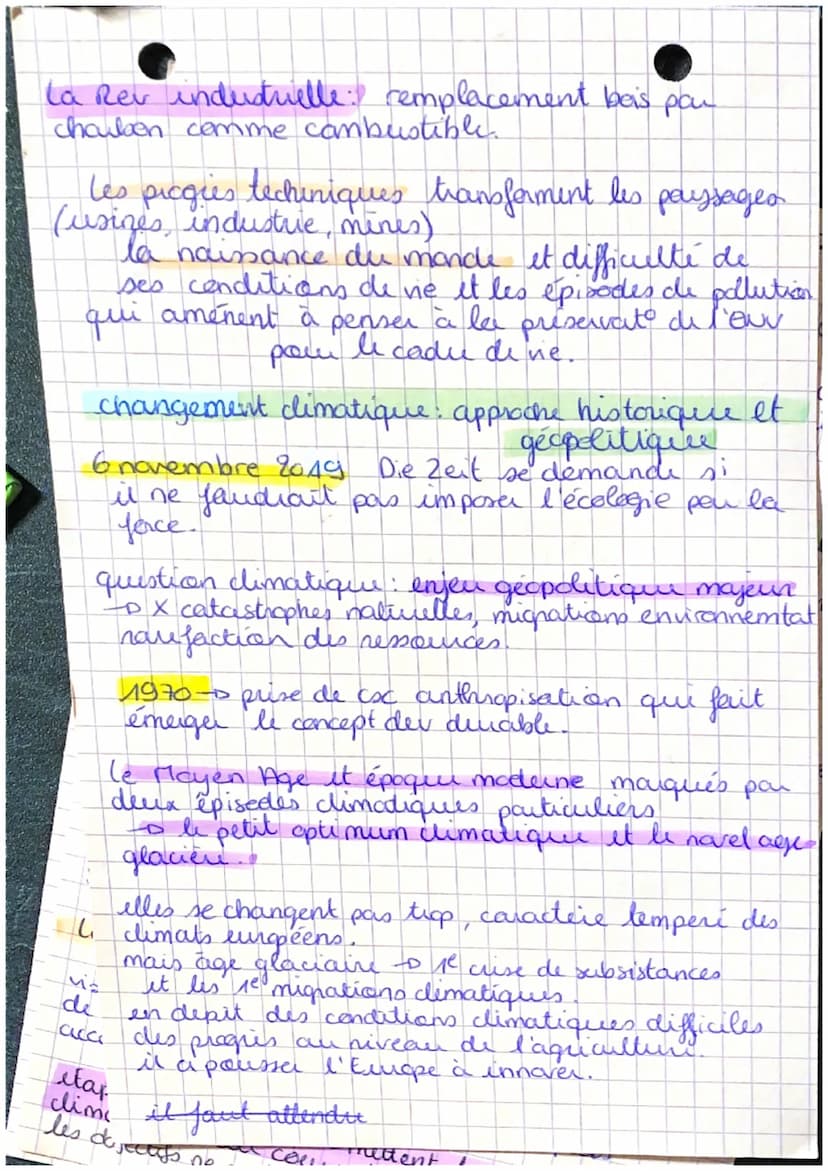 La Rev industrielle: remplacement bois par
charbon comme combustible.
Les progrès techniques transforment les paysages
(usines, industrie, mines)
la naissance du monde et difficulté de
ses conditions de vie et les épisodes de pollution
qui amènent à penser à la préservat° de l'env
pour le cadre de vie.
changement climatique: approche historique et
géopolitique
6 novembre 2019 Die Zeit se demande si
il ne faudrait pas imposer l'écologie par la
force.
question climatique: enjeu géopolitique majeur
→ X catastrophes naturelles, migrations environnemtat
raréfaction des ressources.
1970 → prise de csc anthropisation qui fait
émerger le concept dev durable.
Le Moyen Age et époque moderne marqués par
deux épisodes climatiques particuliers
→ le petit optimum climatique et le navel age
glacière.
elles se changent pas trop, caractère temperé des
climats européens.
mais âge glaciaire → 1e crise de subsistances
et les 1e migrations climatiques.
en depit des conditions climatiques difficiles
des progrès au niveau de l'agriculture.
il a pousser l'Europe à innover.
il faut attendre
de
acc
etap
clim
les objectifs ne